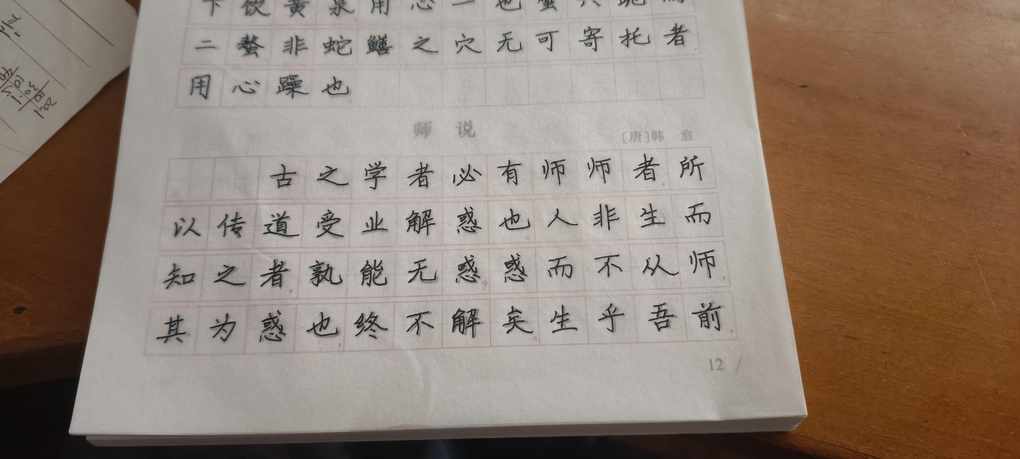 下饮黄泉用心一也蟹六跪而
二螯非蛇鳝之穴无可寄托者
用心躁也
师 说
〔唐〕韩 愈
古之学者必有师师者所
以传道受业解惑也人非生而
知之者孰能无惑惑而不从师
其为惑也终不解矣生乎吾前
12